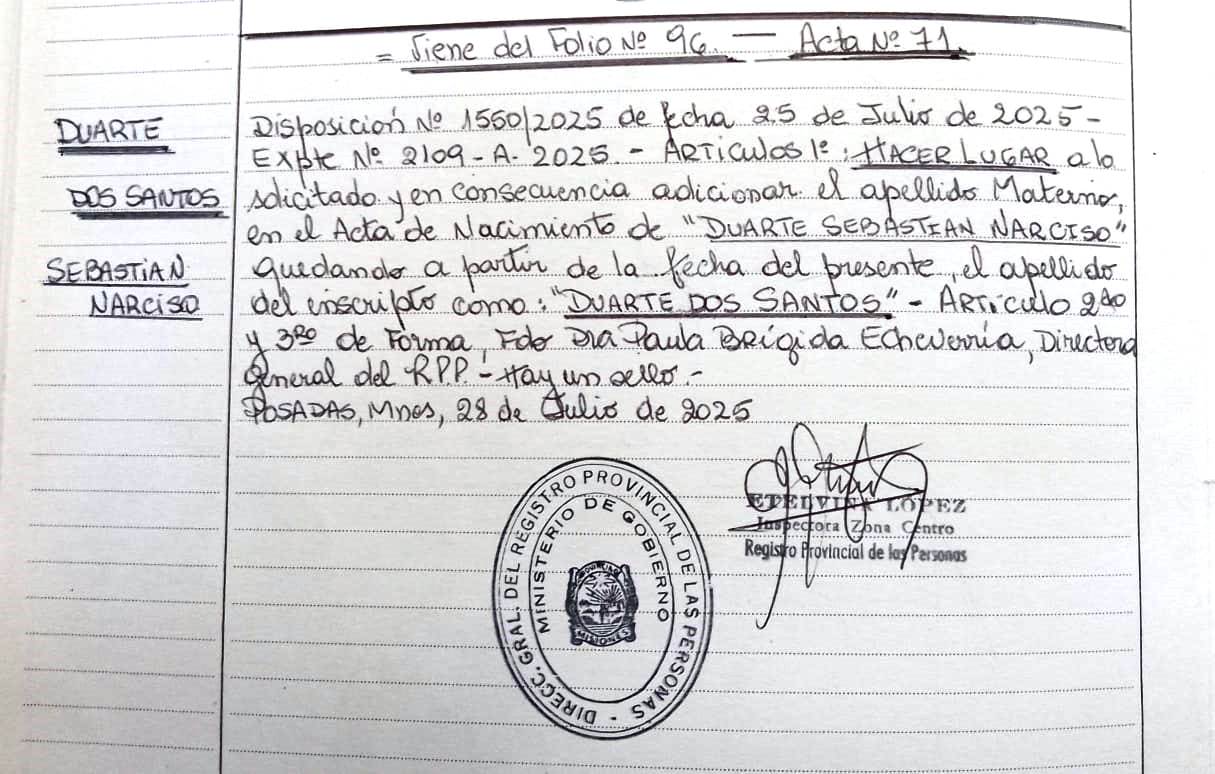 = Viene del Folio Nº 96. — Acta Nº 71.
DUARTE
DOS SANTOS
SEBASTIAN
NARCISO
Disposición Nº 1550/2025 de fecha 25 de Julio de 2025 -
Expte Nº 2109 - A - 2025. - ARTICULOS 1º: HACER LUGAR a lo
solicitado y en consecuencia adicionar el apellido Materno,
en el Acta de Nacimiento de "DUARTE SEBASTIAN NARCISO"
quedando a partir de la fecha del presente, el apellido
del inscripto como: "DUARTE DOS SANTOS" - ARTiculo 2do
y 3RO de Forma, Fdo Dra Paula Brígida Echeverría, Directora
General del R.P.P. - Hay un sello. -
POSADAS, Mnes, 28 de Julio de 2025
DIRECC. GRAL. DEL REGISTRO PROVINCIAL DE LAS PERSONAS -
MINISTERIO DE GOBIERNO
MISIONES
ETELVINA LOPEZ
Inspectora Zona Centro
Registro Provincial de las Personas